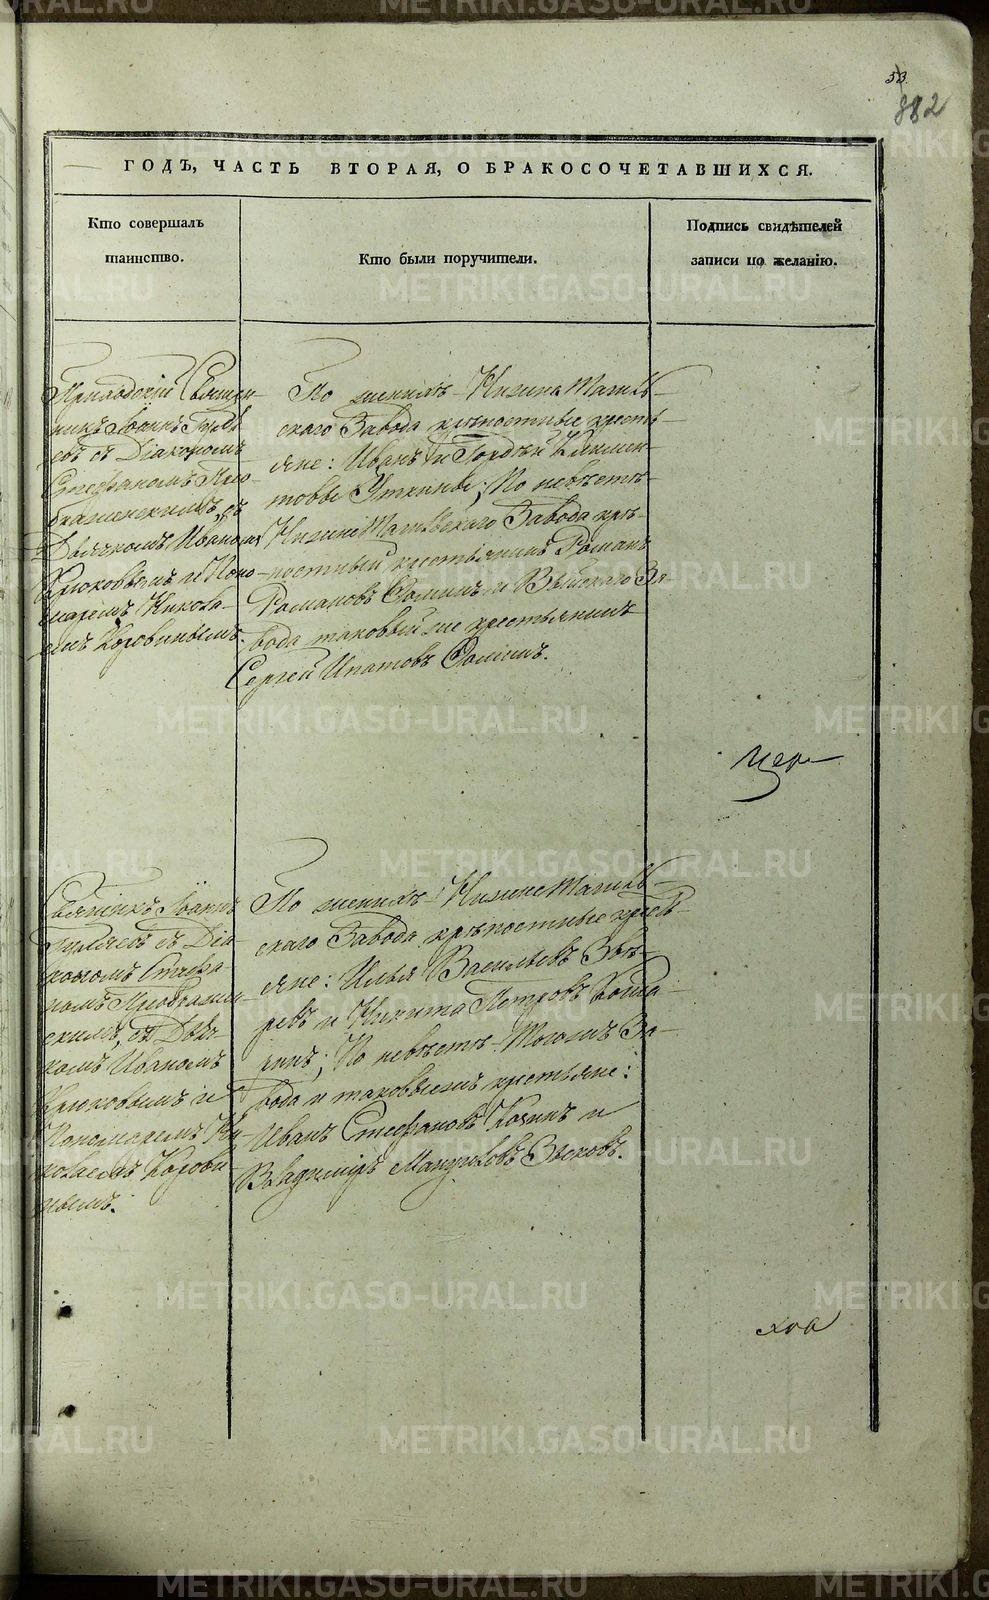 33
882
ГОДЪ, ЧАСТЬ ВТОРАЯ, О БРАКОСОЧЕТАВШИХСЯ.
Кто совершалъ
таинство.
Кто были поручители.
Подпись свидѣтелей
записи по желанію.
Приходскій Священ
никъ Іоаннъ
евъ съ Діакономъ
Стефаномъ Прео
браженскимъ, съ
Дьячкомъ Иваномъ
Крюковымъ и Поно
маремъ Никола
емъ Коровинымъ.
По женихѣ Нижне Тагиль
скаго Завода крѣпостные кресть
яне: Иванъ и Гордѣй Климен
товы Уткины; По невѣстѣ
Нижне Тагильскаго Завода крѣ-
постный крестьянинъ Романъ
Романовъ и Выйскаго За-
вода таковый же крестьянинъ
Сергей Ипатовъ
цер
Священникъ Іоаннъ
съ Діа-
кономъ Стефа-
номъ Преображен
скимъ, съ Дьяч-
комъ Иваномъ
Крюковымъ и
Пономаремъ Ни-
колаемъ Корови
нымъ.
По женихѣ Нижне Тагиль
скаго Завода крѣпостные кресть
яне: Илья Васильевъ Звѣ-
ревъ и Никита Петровъ
По невѣстѣ Тогожъ За-
вода и таковыежъ крестьяне:
Иванъ Стефановъ Козинъ и
Владимиръ
ков
METRIKI.GASO-URAL.RU